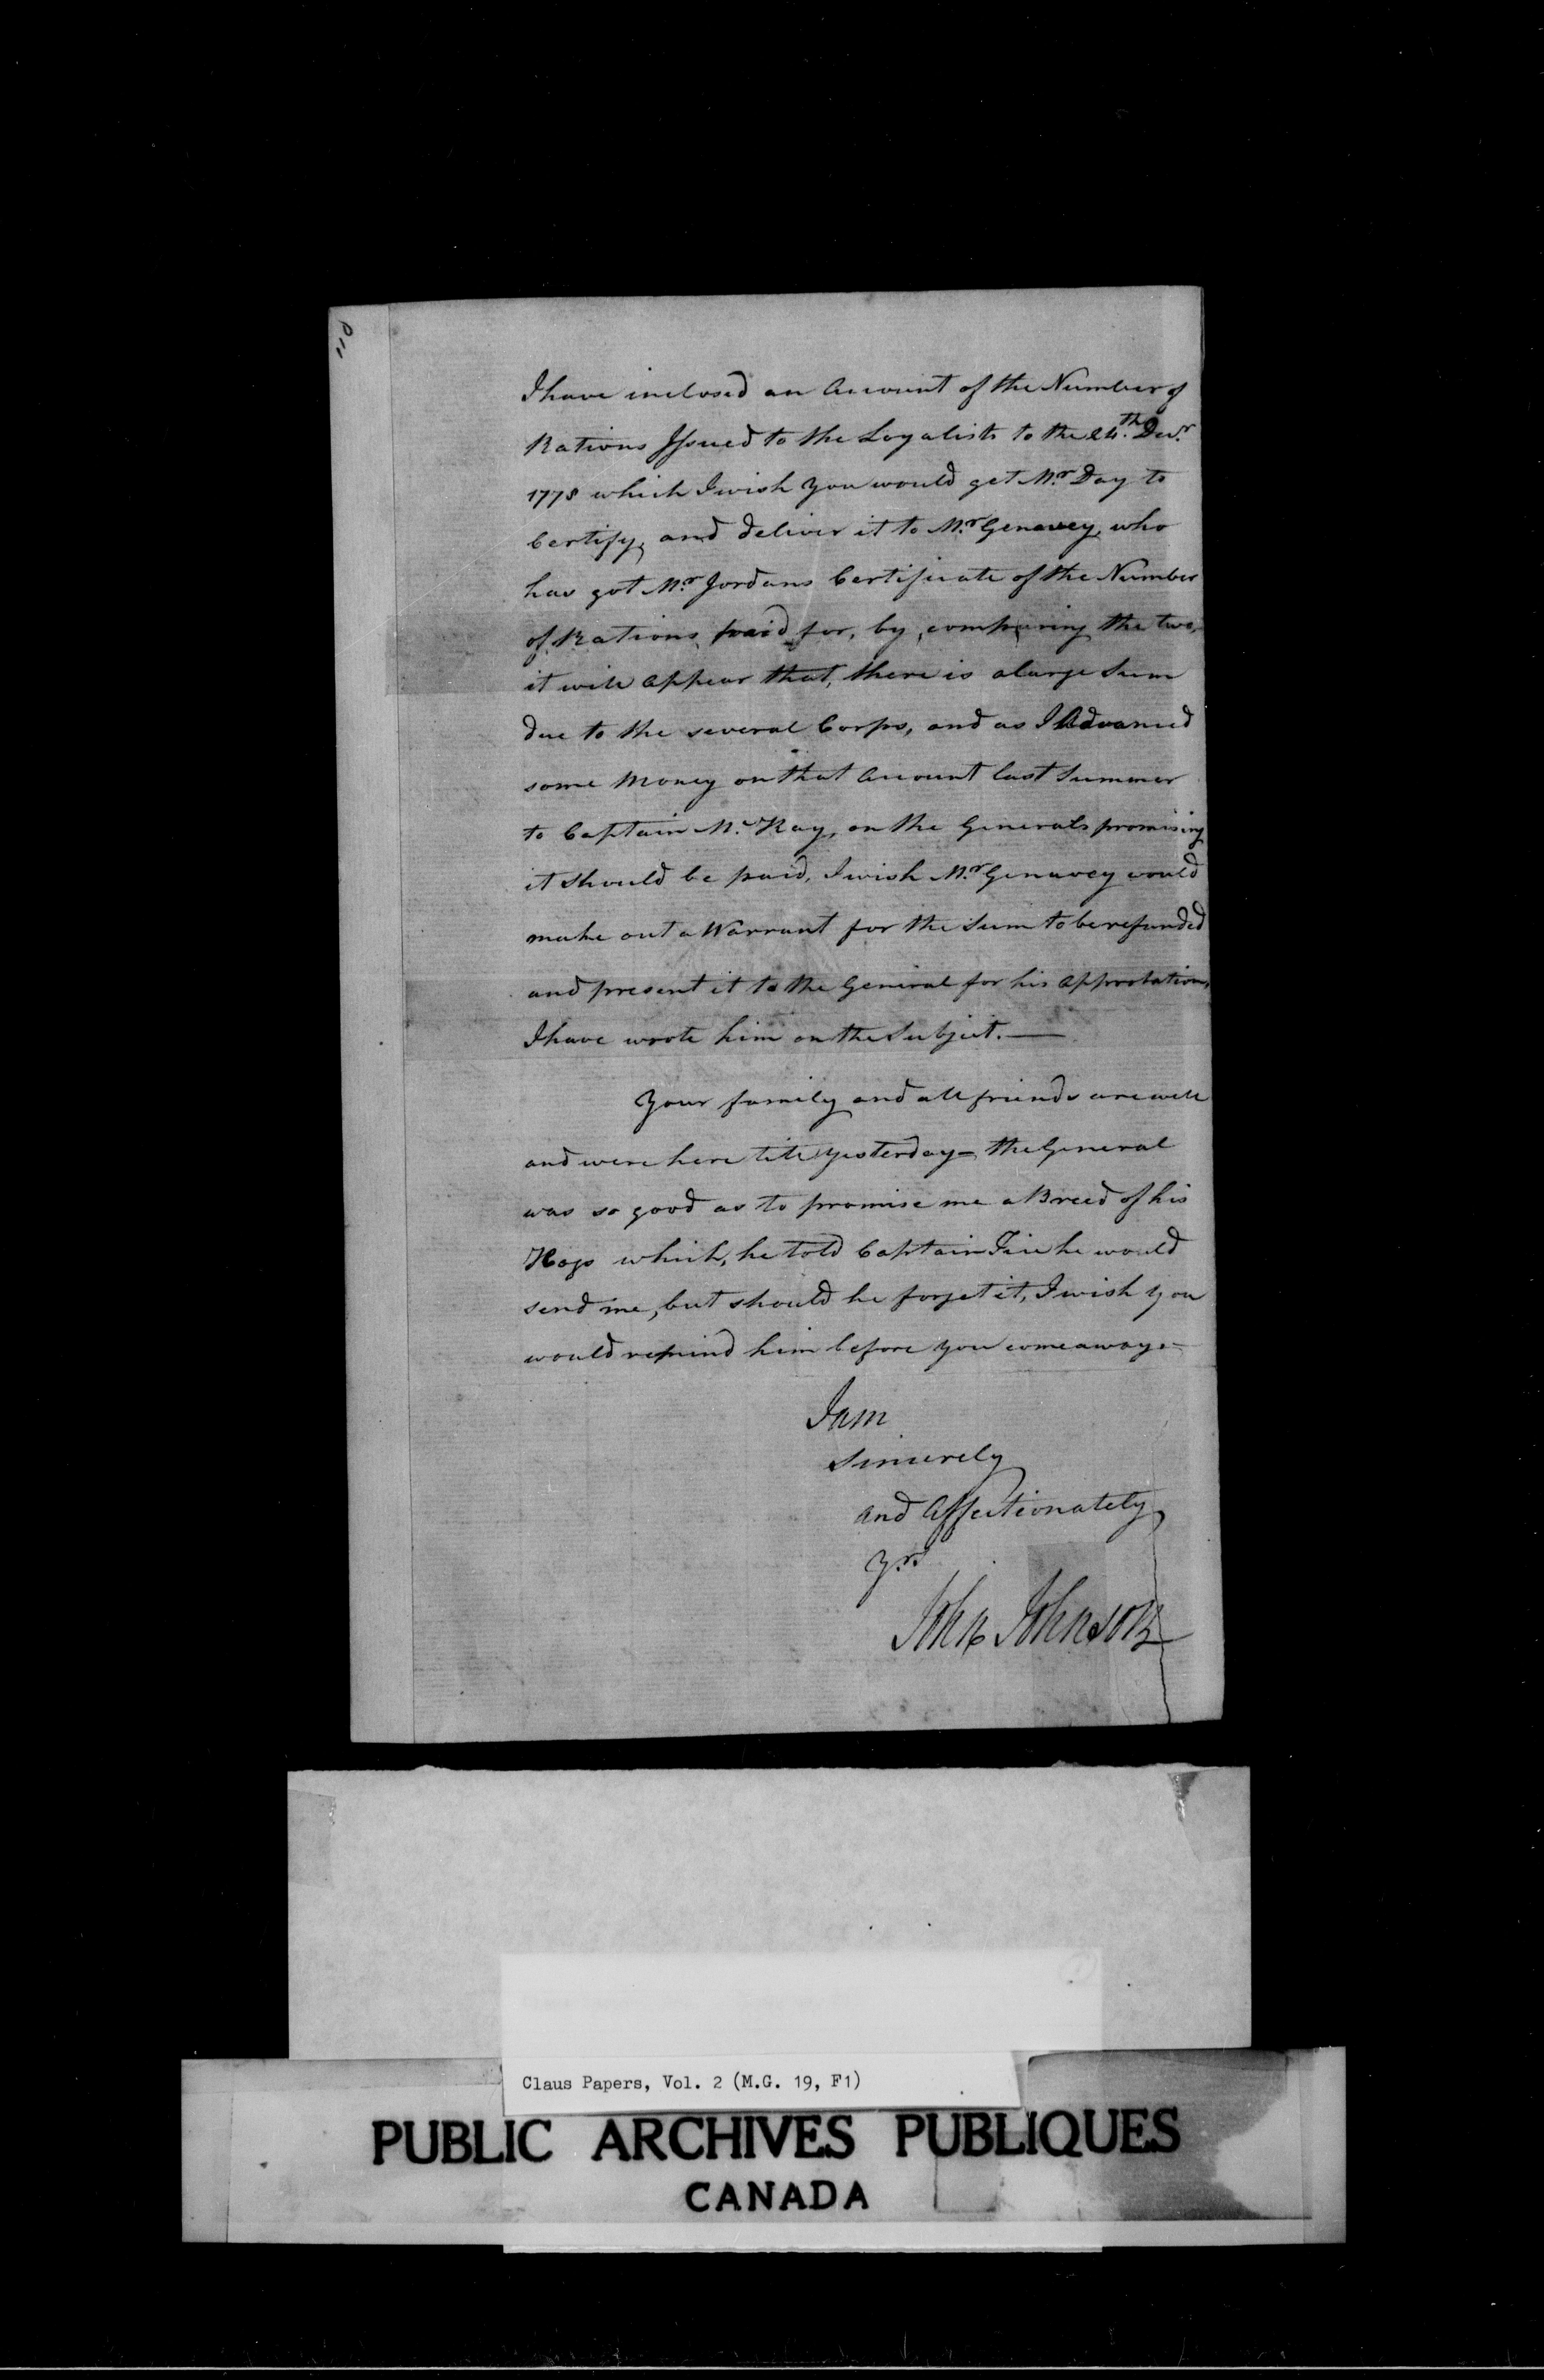 I have inclosed an Account of the Number of
Rations Issued to the Loyalists to the 24.th Decr.
1778 which I wish you would get Mr. Day to
Certify, and deliver it to Mr. Genevey, who
has got Mr. Jordans Certificate of the Number
of Rations paid for, by comparing the two,
it will appear that, there is a large Sum
due to the several Corps, and as I Advanced
some Money on that Account last Summer
to Captain Mc. Kay, on the Generals promising
it should be paid, I wish Mr. Genevey would
make out a Warrant for the Sum to be refunded
and present it to the General for his Approbation,
I have wrote him on the Subject. —
Your family and all friends are well
and were here till yesterday – the General
was so good as to promise me a Breed of his
Hogs which, he told Captain he would
send me, but should he forget it, I wish you
would remind him before you come away. –
I am
Sincerely
and Affectionately
Yrs.
John Johnson
Claus Papers, Vol. 2 (M.G. 19, F1)
PUBLIC ARCHIVES PUBLIQUES
CANADA